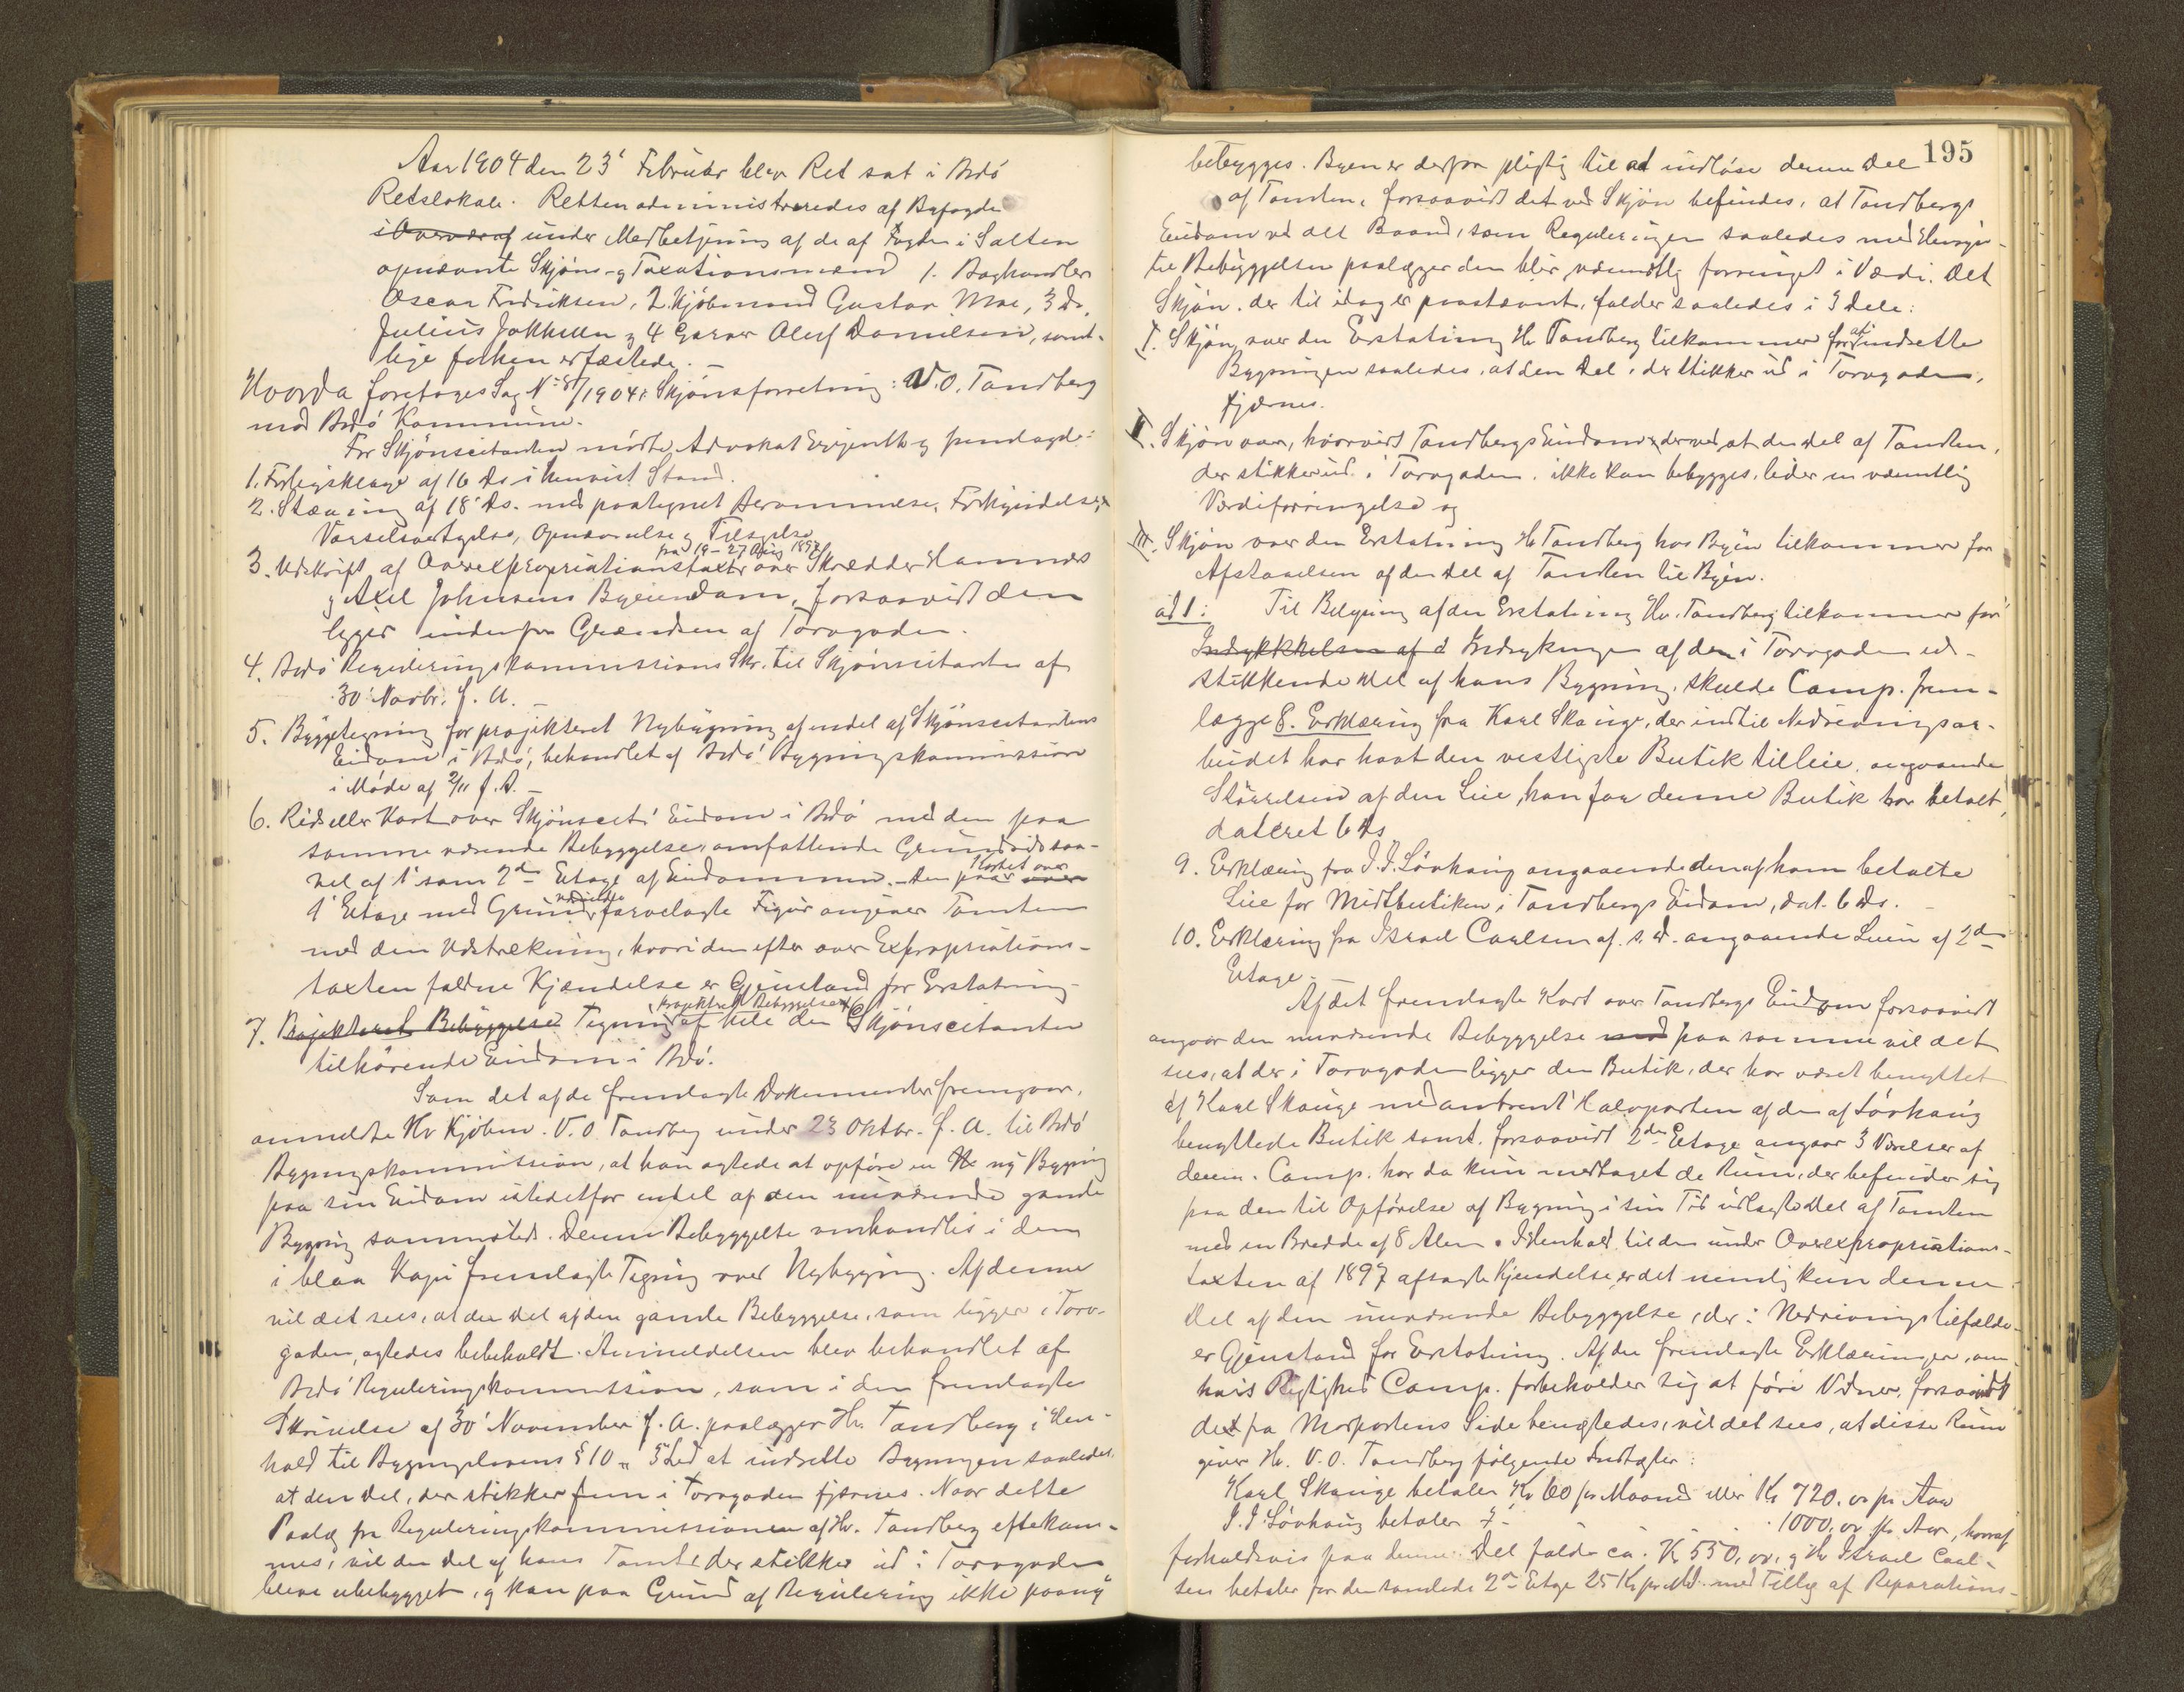 Aar 1904 den 23' Februar blev Ret sat i Bodö
Retslokale. Retten administreredes af Byfogden
i Overvær af under Medbetjening af de af Fogden i Salten
opnævnte Skjöns- og Taxationsmænd 1. Boghandler
Oscar Fredriksen, 2. Kjöbmand Gustav Moe, 3 Do.
Julius Jakhelln og 4 Garver Oluf Danielsen, samt-
lige forhen erfæstede. —
Hvorda foretoges Sag No 8/1904: Skjönsforretning: V. O. Tandberg
mod Bodö Kommune.
For Skjönscitanten mödte Advokat og fremlagde:
1. Forligsklage af 16 Ds i henvist Stand.
2. Stævning af 18' Ds. med paategnet Berammelse, Forkyndelse,
Varselsvedtagelse, Opnævnelse og Tilsigelse
3. Udskrift af Overexpropriationstaxt fra 19-27 Aug 1897 over Skrædder Hamnes
og Axel Johnsens Byeiendom, forsaavidt den
ligger indenfor Grændsen af Torvgaden.
4. Bodö Reguleringskommissions Skr. til Skjönscitanten af
30' Novbr. f. A. —
5. Byggetegning for projekteret Nybygning af endel af Skjönscitantens
Eiendom i Bodö, behandlet af Bodö Bygningskommission
i Möde af 2/11 f. A. —
6. Rids eller Kart over Skjönscit's Eiendom i Bodö med den paa
samme værende Bebyggelse, omfattende Grundrids saa-
vel af 1' som 2den Etage af Eiendommen. — Den paa Kartet over
1' Etage med Grund farvelagte Figur angiver Tomten
med den Udstrækning, hvori den efter over Expropriations-
taxten faldne Kjendelse er Gjenstand for Erstatning
7. Projekteret Bebyggelse Tegning projekteret Bebyggelse af hele den Skjönscitanten
tilhörende Eiendom i Bodö.
Som det af de fremlagte Dokumenter fremgaar,
anmeldte Hr Kjöbm. V. O. Tandberg under 23 Oktbr. f. A. til Bodö
Bygningskommission, at han agtede at opföre en ny Bygning
paa sin Eiendom istedetfor endel af den nuværende gamle
Bygning sammesteds. Denne Bebyggelse omhandles i den
i blaa Kopi fremlagte Tegning over Nybygning. Af denne
vil det sees, at den Del af den gamle Bebyggelse, som ligger i Torv-
gaden, agtedes bibeholdt. Anmeldelsen blev behandlet af
Bodö Reguleringskommission, som i den fremlagte
Skrivelse af 30' November f. A. paalægger Hr. Tandberg i Hen-
hold til Bygningslovens § 10 5 Led at indrette Bygningen saaledes,
at den Del, der stikker frem i Torvgaden fjernes. Naar dette
Paalæg fra Reguleringskommissionen af Hr. Tandberg efterkom-
mes, vil den Del af hans Tomt, der stikker ud i Torvgaden
blive ubebygget, og kan paa Grund af Regulering ikke paany
195
bebygges. Byen er derfor pligtig til at indlöse denne Del
af Tomten, forsaavidt det ved Skjön befindes, at Tandbergs
Eiendom ved det Baand, som Reguleringen saaledes med Hensyn
til Bebyggelsen paalægger den blir væsentlig forringet i Værdi. Det
Skjön, der til idag er paastævnt, falder saaledes i 3 Dele:
I. Skjön over den Erstatning Hr Tandberg tilkommer for at indrette
Bygningen saaledes, at den Del, der stikker ud i Torvgaden,
fjernes.
II. Skjön over, hvorvidt Tandbergs Eiendom derved at den Del af Tomten,
der stikker ud i Torvgaden, ikke kan bebygges, lider en væsentlig
Værdiforringelse og
III. Skjön over den Erstatning Hr Tandberg hos Byen tilkommer for
Afstaaelsen af den Del af Tomten til Byen.
ad 1: Til Belysning af den Erstatning Hr. Tandberg tilkommer for
Indrykkelsen af d Indrykningen af den i Torvgaden ud-
stikkende Del af hans Bygning, skulde Comp. frem-
lægge 8. Erklæring fra Karl Skauge, der indtil Nedrivningsar-
beidet har havt den vestligste Butik tilleie, angaaende
Störrelsen af den Leie, han for denne Butik har betalt,
dateret 6 Ds
9. Erklæring fra J. J. Lövhaug angaaende den af ham betalte
Leie for Midtbutiken i Tandbergs Eiendom, dat. 6 Ds. —
10. Erklæring fra Israel Carlsen af s. d. angaaende Leien af 2den
Etage. —
Af det fremlagte Kart over Tandbergs Eiendom forsaavidt
angaar den nuværende Bebyggelse med paa samme vil det
sees, at der i Torvgaden ligger den Butik, der har været benyttet
af Karl Skauge med omtrent Halvparten af den af Lövhaug
benyttede Butik samt, forsaavidt 2den Etage angaar 3 Værelser af
denne. Comp. har da kun medtaget de Rum, der befinder sig
paa den til Opförelse af Bygning i sin Tid udlagte Del af Tomten
med en Bredde af 8 Alen. I Henhold til den under Overexpropriations-
taxten af 1897 afsagte Kjendelse, er det nemlig kun denne
Del af den nuværende Bebyggelse, der i Nedrivningstilfælde
er Gjenstand for Erstatning. Af de fremlagte Erklæringer, om
hvis Rigtighed Comp. forbeholder sig at före Vidner, forsaavidt
det fra Modpartens Side benægtedes, vil det sees, at disse Rum
giver Hr. V. O. Tandberg fölgende Indtægter:
Karl Skauge betaler Kr 60 pr Maaned eller Kr 720.00 pr Aar
J. J. Lövhaug betaler 1000.00 pr Aar, hvoraf
forholdsvis paa denne Del falder ca. Kr 550,00, og Hr Israel Carl-
sen betaler for den samlede 2den Etage 25 Kr pr Md. med Tillæg af Reparations-